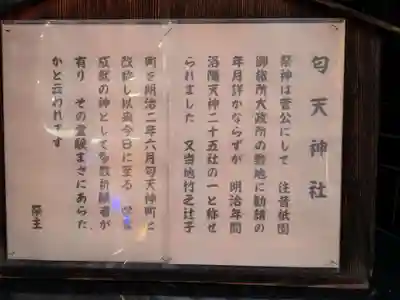 匂天神社
祭神は菅公にして 往昔祇園
御旅所大政所の敷地に勧請の
年月詳かならずが 明治年間
洛陽天神二十五社の一と称せ
られました 又当地竹之辻子
町を明治二年六月匂天神町と
改称し以来今日に至る 学業
成就の神として多数祈願者が
有り その霊験まさにあらた
かと云われてます
願主